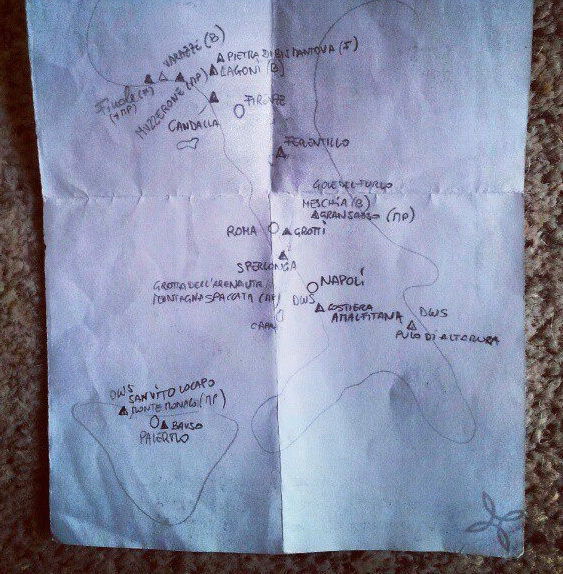 VARAZZE (B)
PIETRA DI BISMANTOVA (F)
LAGONI (B)
Finale (M)
(+MP)
MUZZERONE (MP)
FIRENZE
CANDALLA
FERENTILLO
GOLE DEL FURLO
MESCHIA (B)
GRAN SASSO (MP)
ROMA
GROTTI
SPERLONGA
GROTTA DELL'ARENAUTA
MONTAGNA SPACCATA (MP)
NAPOLI
DWS
COSTIERA
AMALFITANA
CAPRI
DWS
PULO DI ALTAMURA
DWS
SAN VITO LO CAPO
MONTE MONACO (MP)
BAUSO
PALERMO